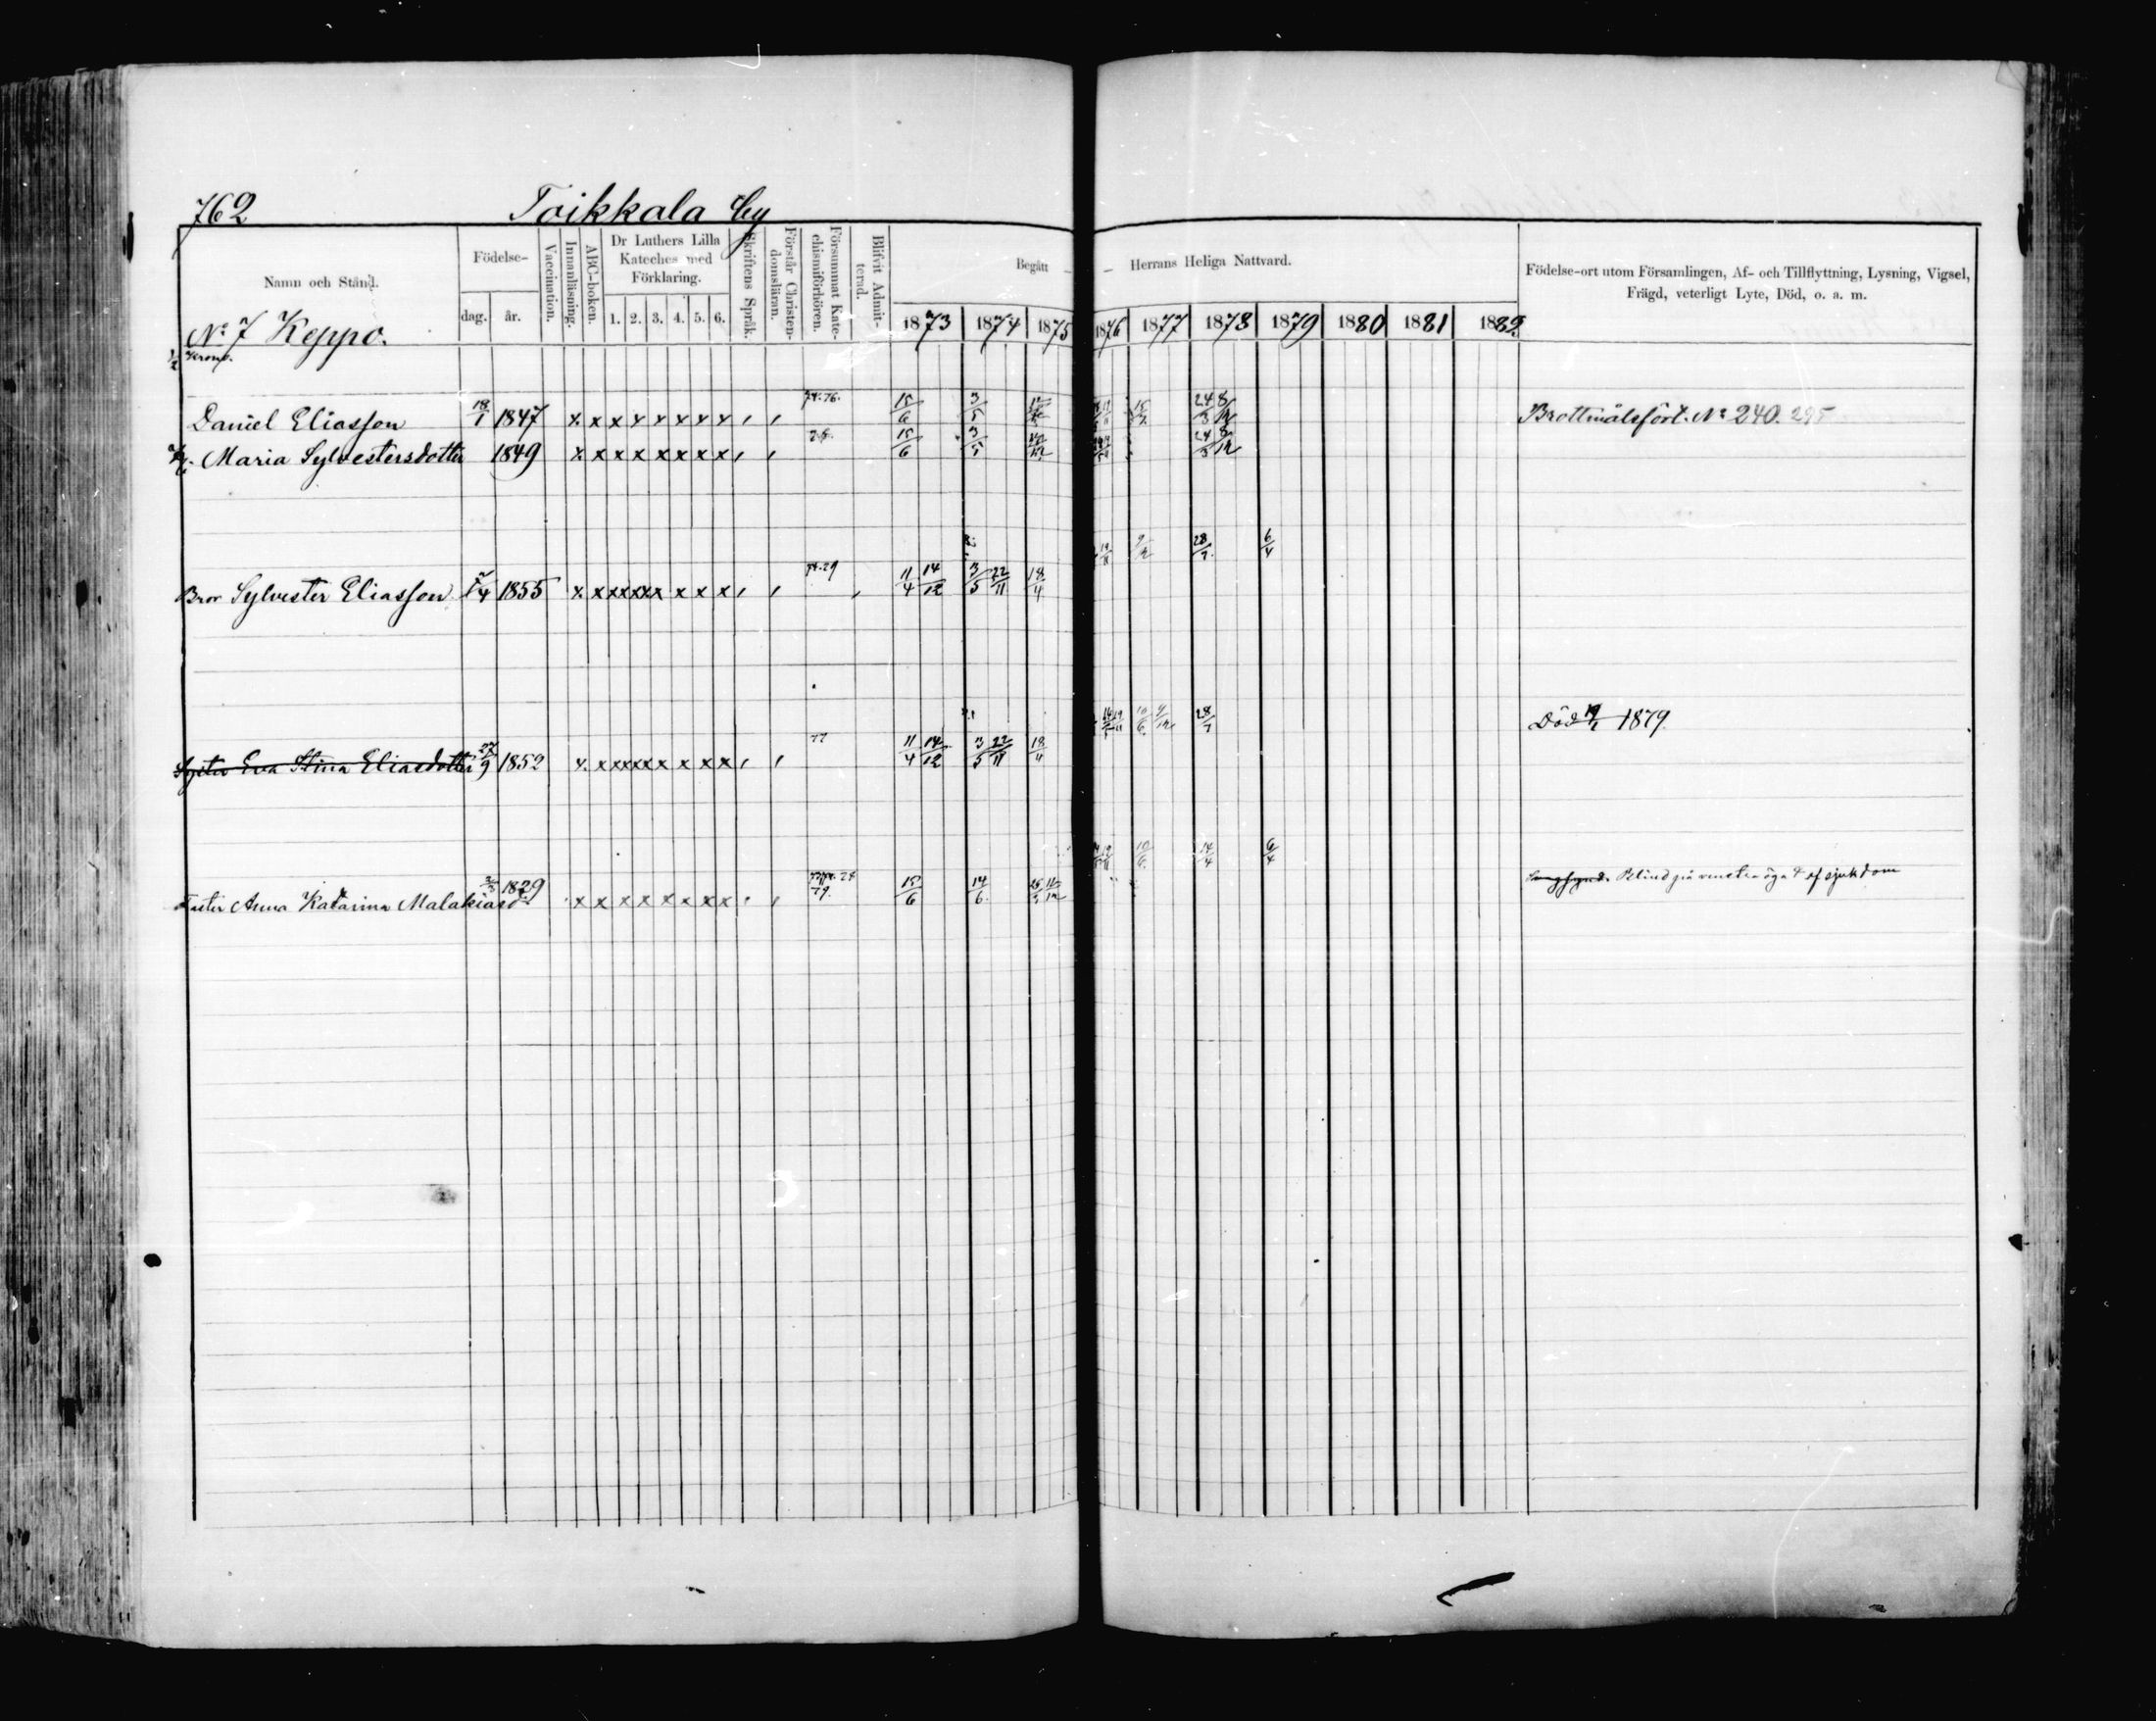 762 Toikkala by
Namn och Stånd.
Födelse-
dag. år.
Vaccination.
Innanläsning.
ABC-boken.
Dr Luthers Lilla
Kateches med
Förklaring.
1. 2. 3. 4. 5. 6.
Skriftens Språk.
Förstår Christen-
domsläran.
Försummat Kate-
chismiförhören.
Blifvit Admit-
terad.
Begått — — Herrans Heliga Nattvard.
1873 1874 1875 1876 1877 1878 1879 1880 1881 1882
Födelse-ort utom Församlingen, Af- och Tillflyttning, Lysning, Vigsel,
Frägd, veterligt Lyte, Död, o. a. m.
No 7 Keppo.
Daniel Eliasson 18/1 1847 x x x x x x x x 74. 76. 15/6 3/5 24/3 8/12 Brottmålsfört. No 240. 295
Maria Sylvestersdotter 1849 x x x x x x x x 15/6 3/5 24/3 8/12
9/12 28/7 6/4
Bror Sylvester Eliasson 1855 x x x x x x x x 74. 79 11/4 14/12 3/5 22/11 18/4
10/6 9/12 28/7 Död 19/1 1879.
Syster Eva Stina Eliasdotter 27/9 1852 x x x x x x x x 77 11/4 14/12 3/5 22/11 18/4
10/6 14/4 6/4
Faster Anna Katarina Malakiasd. 1829 x x x x x x x x 79. 15/6 14/6 Blind på venstra öga af sjukdom